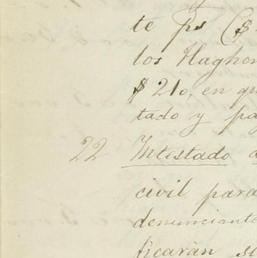 te ps ($
los Hughon
$ 210, en qu
tado y pa
22 Intestado
civil para
denunciante
ficarán